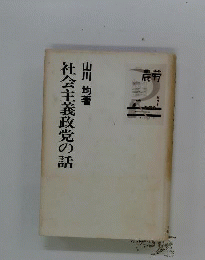 山川 均著
社会主義政党の話